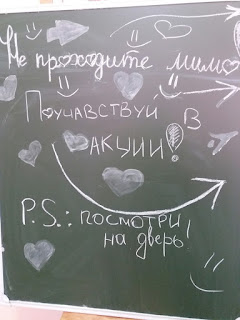 Не проходите мимо
Поучавствуй в
акции!
P.S.: посмотри
на дверь!